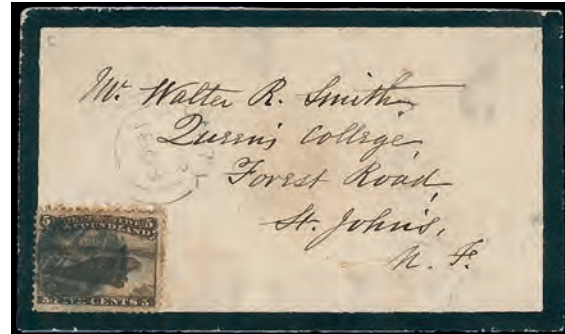 Mr. Walter R. Smith
Queen's College,
Forest Road,
St. John's,
N. F.
5 5
NEWFOUNDLAND
5 FIVE CENTS 5